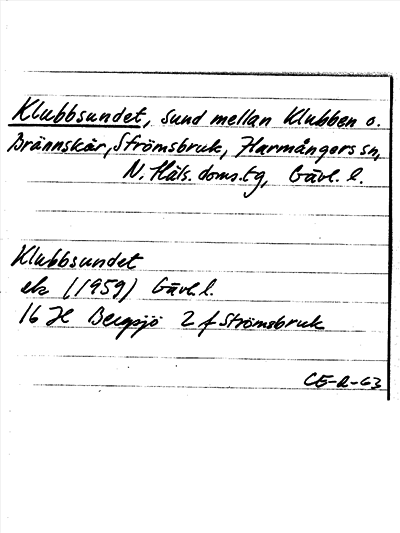 Klubbsundet, sund mellan Klubben o.
Brännskär, Strömsbruk, Harmångers sn,
N. Häls. doms.tg, Gävl. l.
Klubbsundet
ek (1959) Gävl. l.
16 H Bergsjö 2 f Strömsbruk
CE-R-63